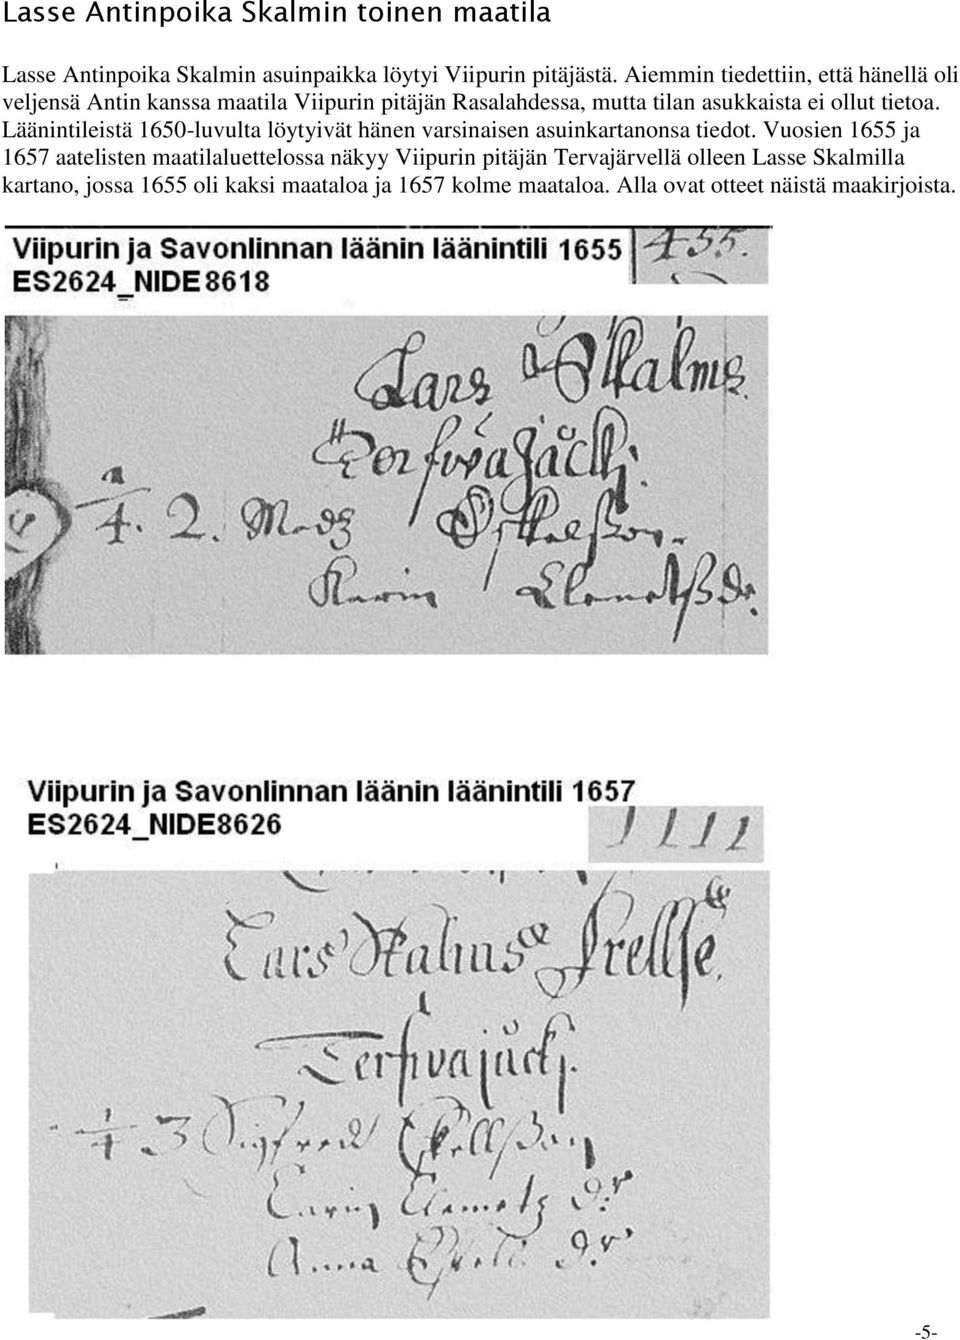 Lasse Antinpoika Skalmin toinen maatila
Lasse Antinpoika Skalmin asuinpaikka löytyi Viipurin pitäjästä. Aiemmin tiedettiin, että hänellä oli
veljensä Antin kanssa maatila Viipurin pitäjän Rasalahdessa, mutta tilan asukkaista ei ollut tietoa.
Läänintileistä 1650-luvulta löytyivät hänen varsinaisen asuinkartanonsa tiedot. Vuosien 1655 ja
1657 aatelisten maatilaluettelossa näkyy Viipurin pitäjän Tervajärvellä olleen Lasse Skalmilla
kartano, jossa 1655 oli kaksi maataloa ja 1657 kolme maataloa. Alla ovat otteet näistä maakirjoista.
Viipurin ja Savonlinnan läänin läänintili 1655
ES2624_NIDE8618
455.
Lars Skalms
2. Madz
Karin
Viipurin ja Savonlinnan läänin läänintili 1657
ES2624_NIDE8626
1111
Lars Skalms Frellse.
3 Sigfred
Carin Clemetz dr
Anna dr
-5-